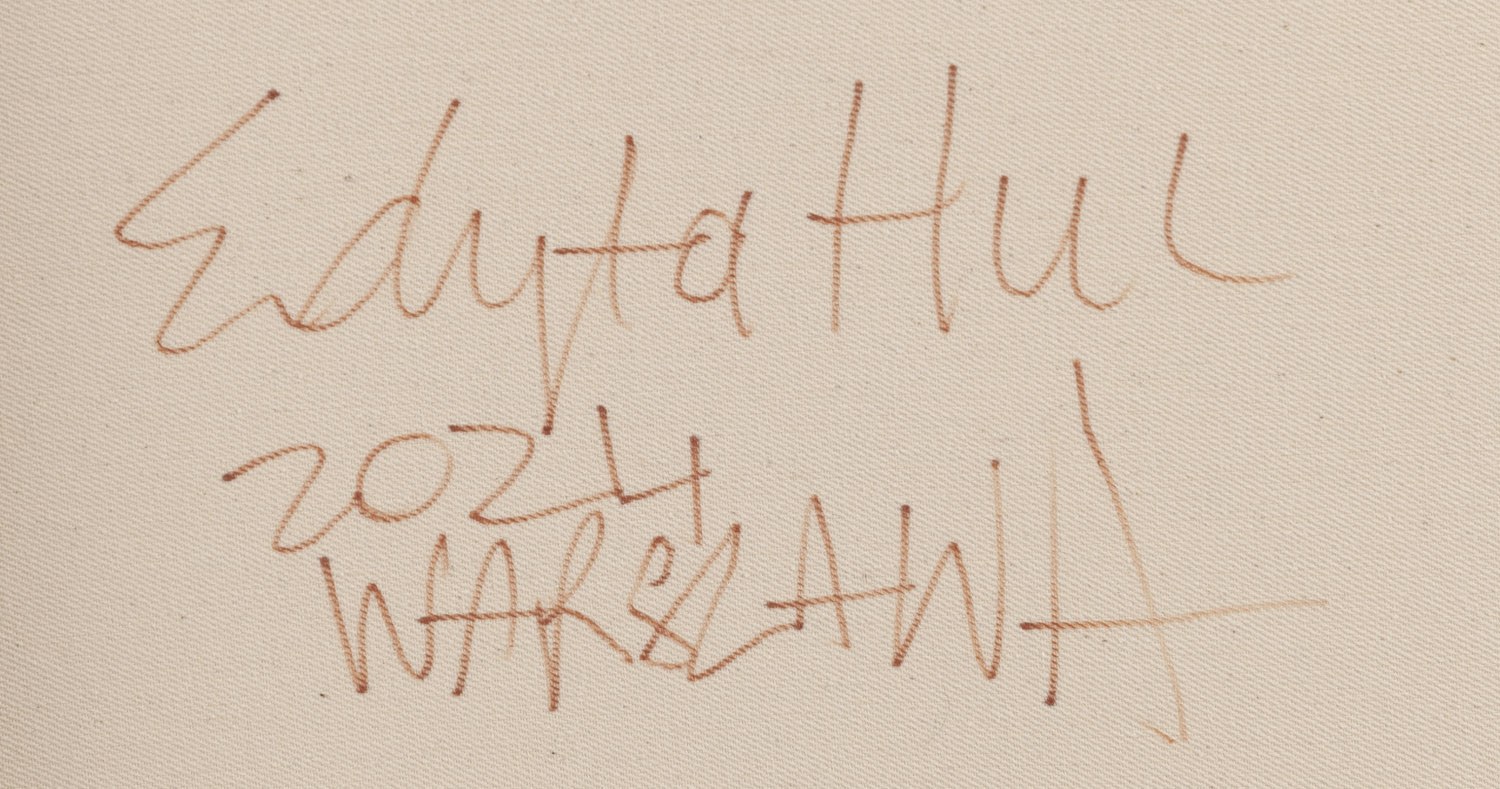 Edyta Hul
2024
WARSZAWA